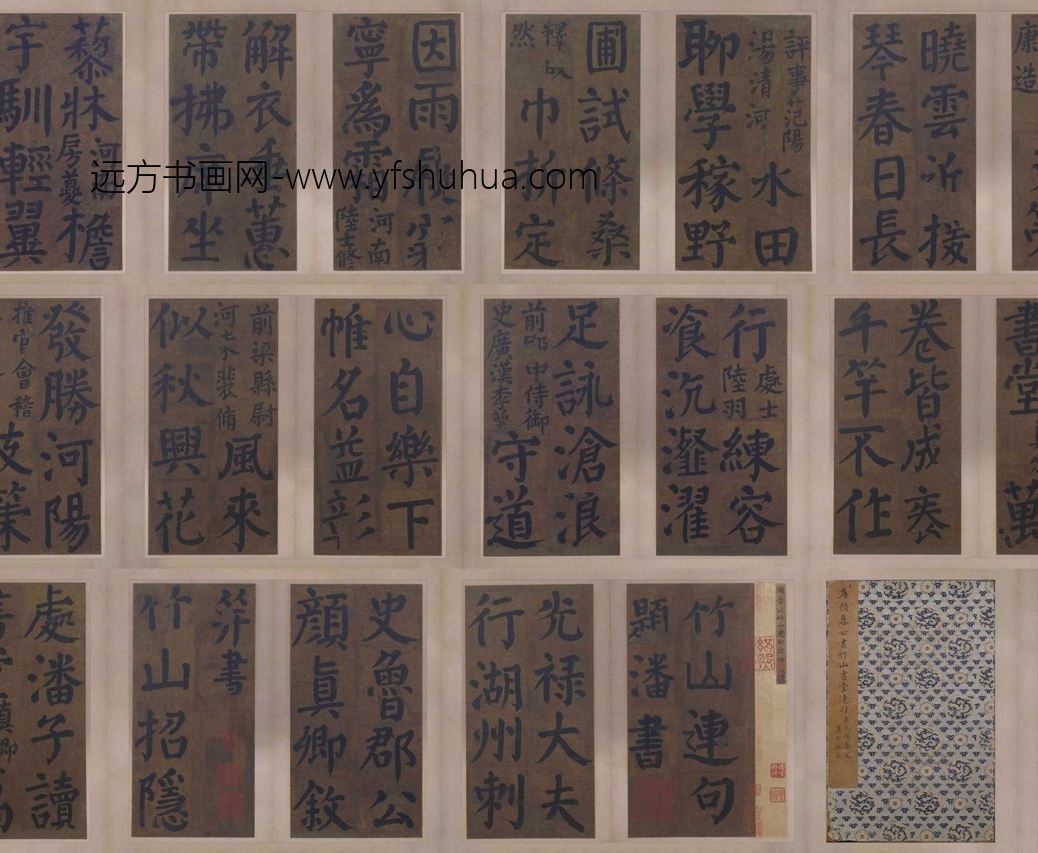 远方书画网-www.yfshuhua.com
康造
曉雲近接
琴春日長
評事范陽
湯清河
水田
聊學稼野
圃試條桑
釋
然
巾折定
因雨
寧為
河南
陸士修
解衣垂蕙
帶拂席坐
藜牀
河南
房夔
檐
宇馴輕翼
書堂
萬
卷皆成袠
千竿不作
行
處士
陸羽
練容
飡沆瀣濯
足詠滄浪
前殿中侍御
史廣漢李萼
守道
心自樂下
帷名益彰
前梁縣尉
河東裴脩
風來
似秋興花
發勝河陽
推官會稽
竹山連句
題潘書
光禄大夫
行湖州刺
史魯郡公
顏真卿敘
并書
竹山招隱
處潘子讀
書堂
真卿